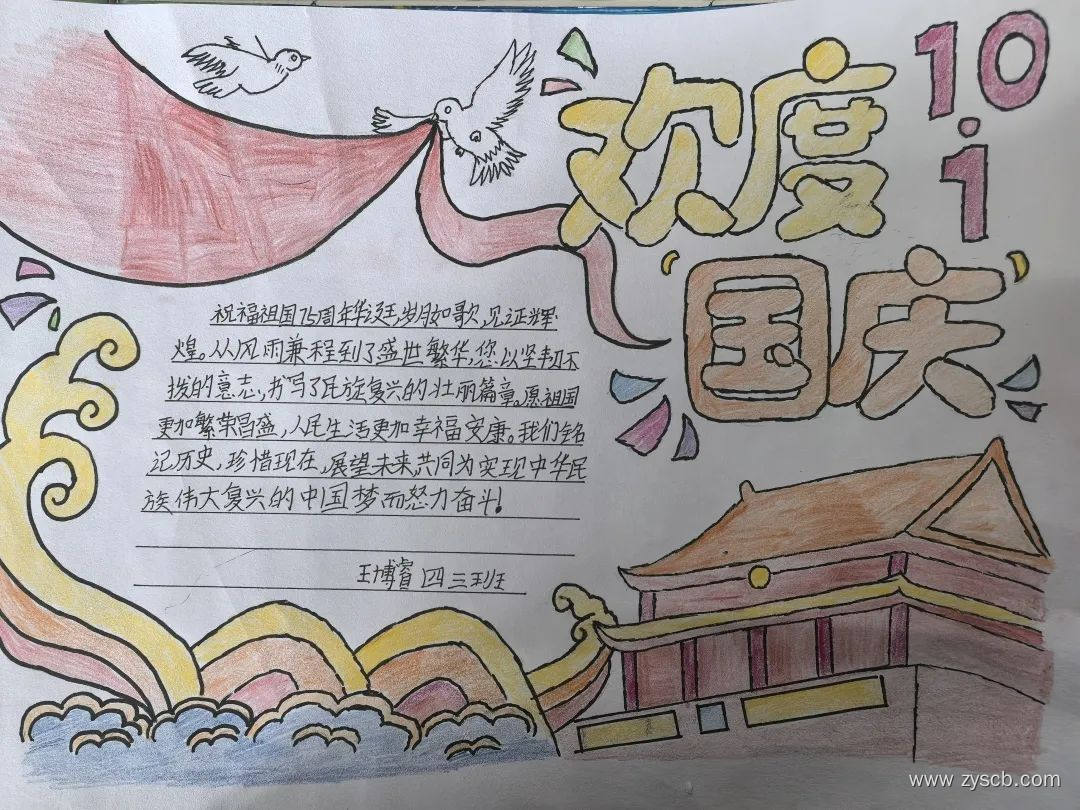 欢度
国庆
10
·
1
祝福祖国75周年华诞,岁月如歌,见证辉
煌。从风雨兼程到了盛世繁华,您以坚韧不
拨的意志,书写了民族复兴的壮丽篇章。愿祖国
更加繁荣昌盛,人民生活更加幸福安康。我们铭
记历史,珍惜现在,展望未来,共同为实现中华民
族伟大复兴的中国梦而怒力奋斗!
王博睿 四 三班
www.zyscb.com